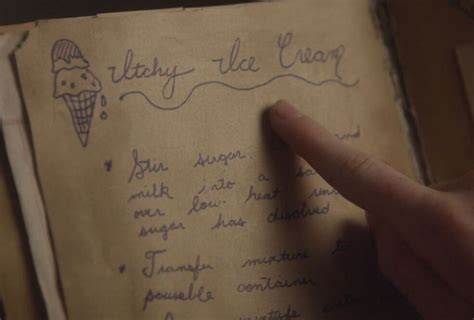 Itchy Ice Cream
• Stir sugar, and
milk into a sa
over low heat un
sugar has disolved
• Transfer mixture to
pourable container